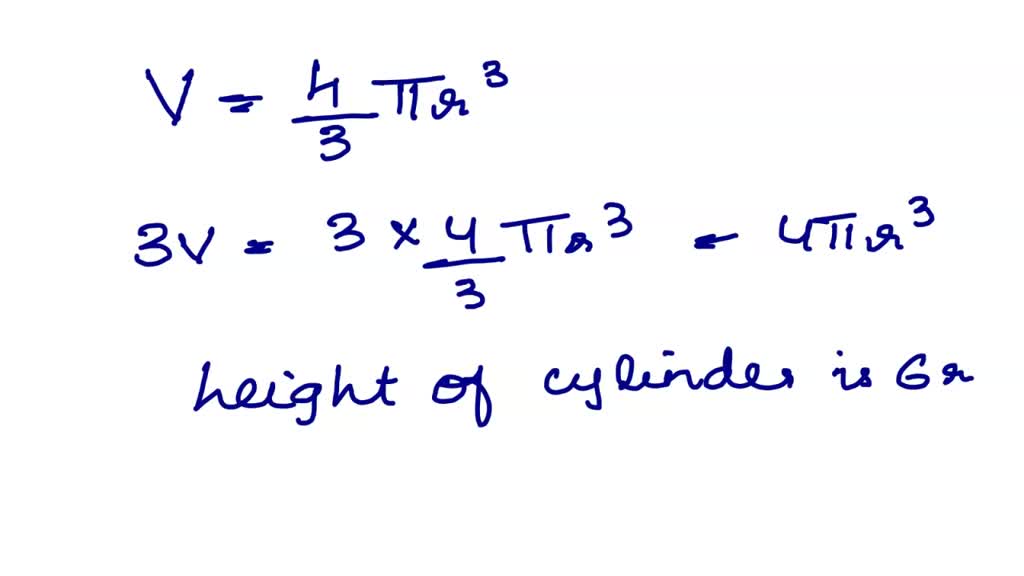 V = 4/3 πr³
3V = 3 × 4/3 πr³ = 4πr³
height of cylinder is 6r